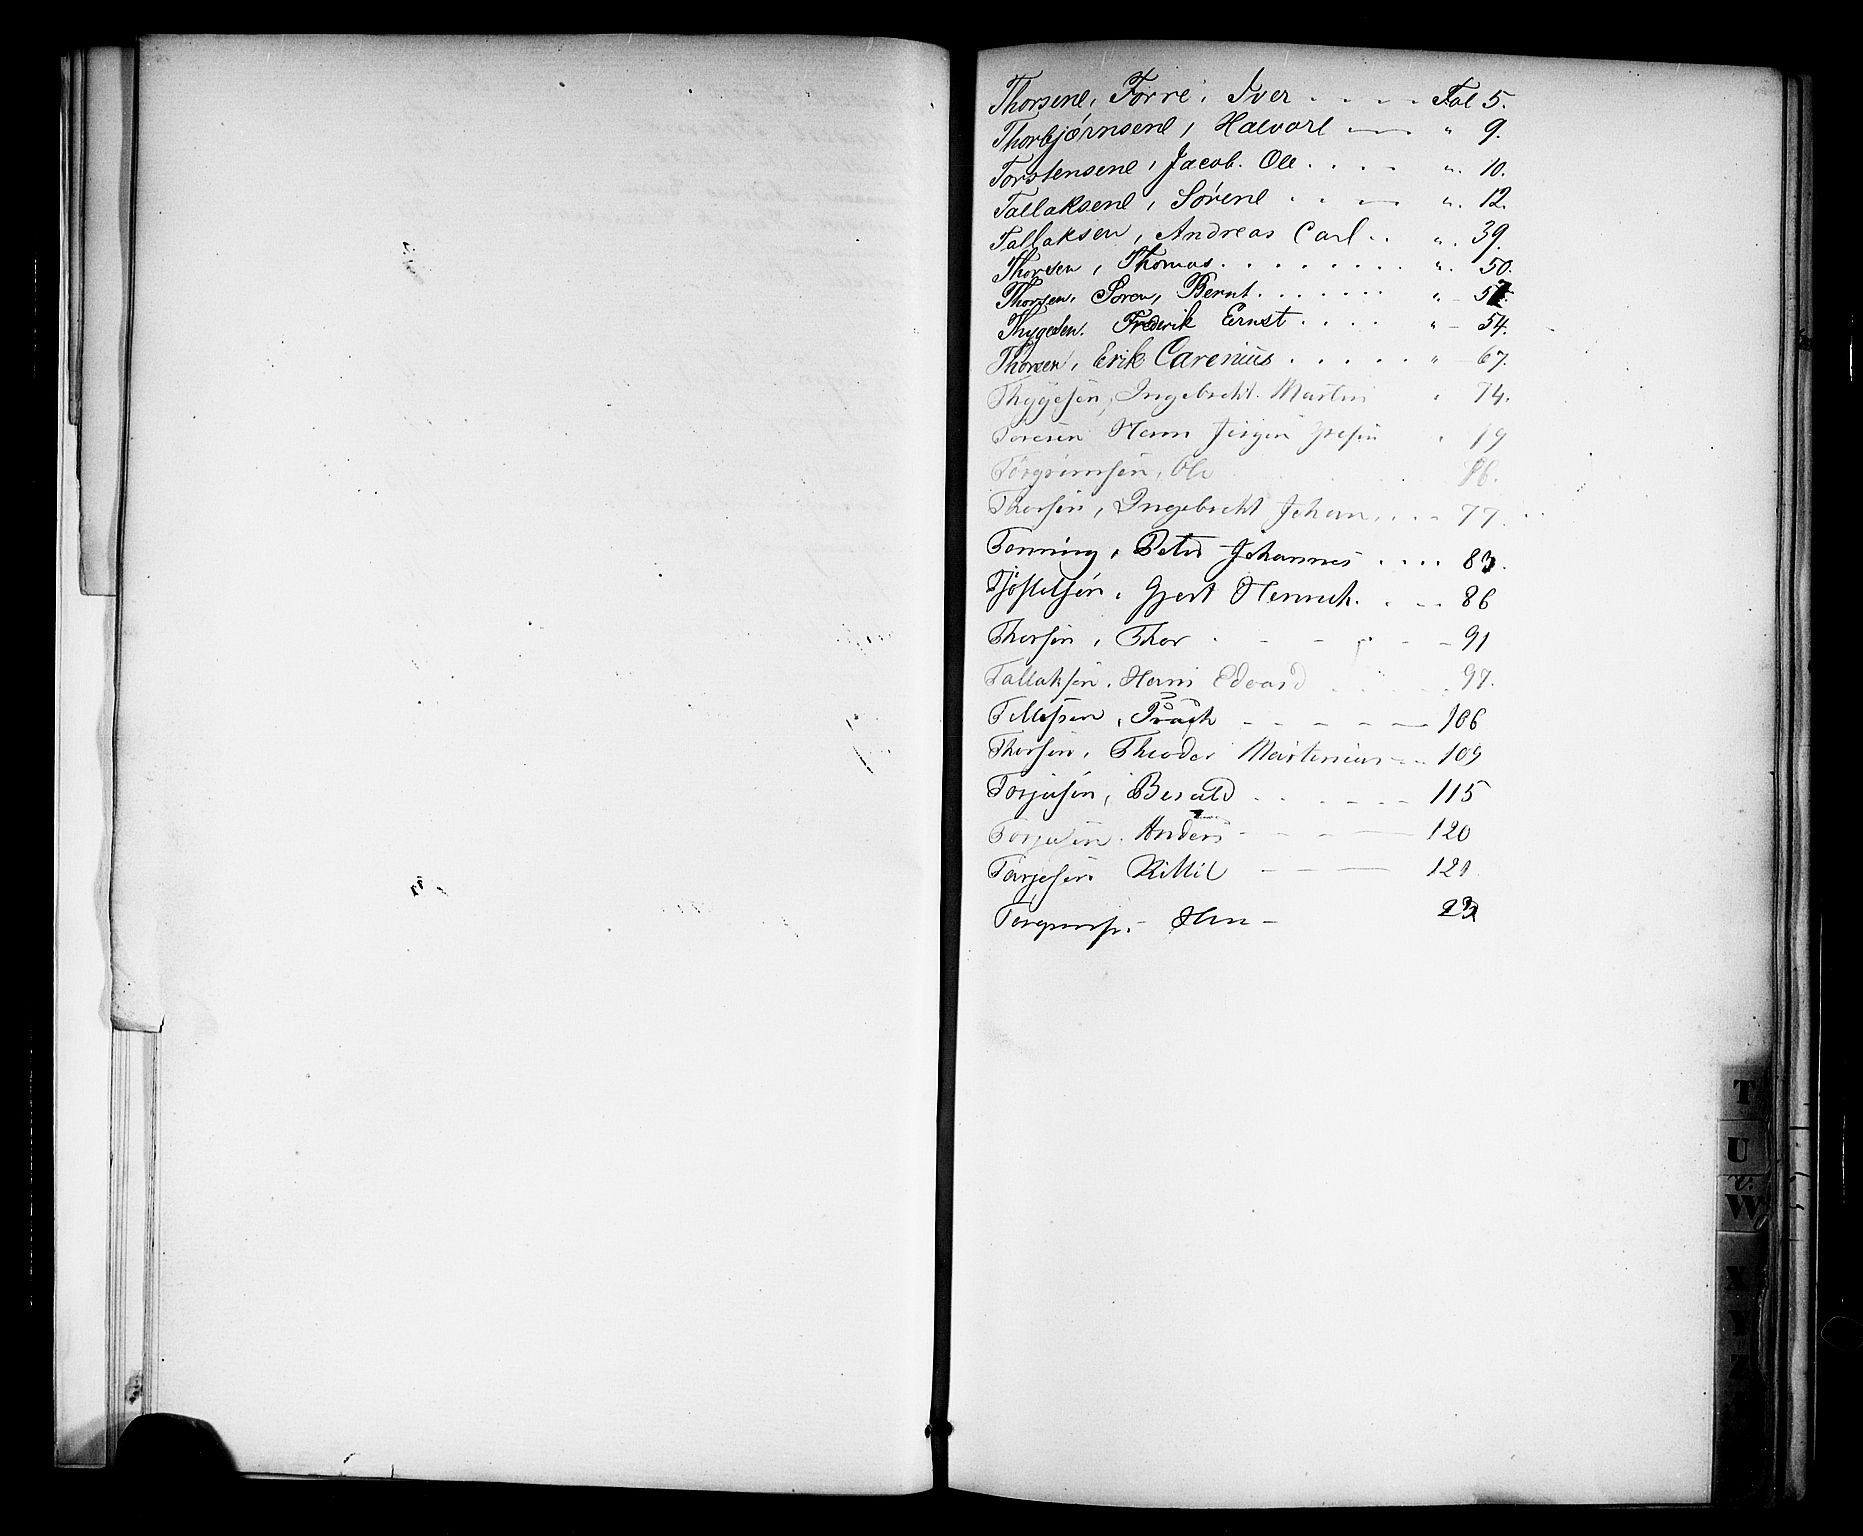 Thorsene, Torre, Iver . . . . Fol 5.
Thorbjørnsene, Halvorl — " 9.
Torstensene, Jacob. Ole . . . . " 10.
Tallaksene, Sørene . . . " 12.
Tallaksen, Andreas Carl . . " 39.
Thorsen, Thomas . . . . . . . . . " 50.
Thorsen, Soren, Bernt . . . . . . "
Thygesen. Frederik Ernst . . . . " 54.
Thorsen, Erik Carenius . . . . . " 67.
Thygesen, Ingebrecht Martin " 74.
Hans Jörgen
Torgrimsen, Ole 86.
Thorsen, Ingebrecht Johan . . . . 77.
Tonning, Peter Johannes . . . . 83.
Tjöstelsen, Gjert Henrich . . . . 86
Thorsen, Thor . - - - - 91
Tallaksen, Hans Edvard . . . . 97.
Tellefsen, - - - - 106
Thorsen, Theodor Martenius . . . 109
Torjusen, Beruld . . . . . . 115
Torjusen. Anders - - - 120
Tarjesen Kittil - - - 121
23
T
U
V.
W
X
Y
Z